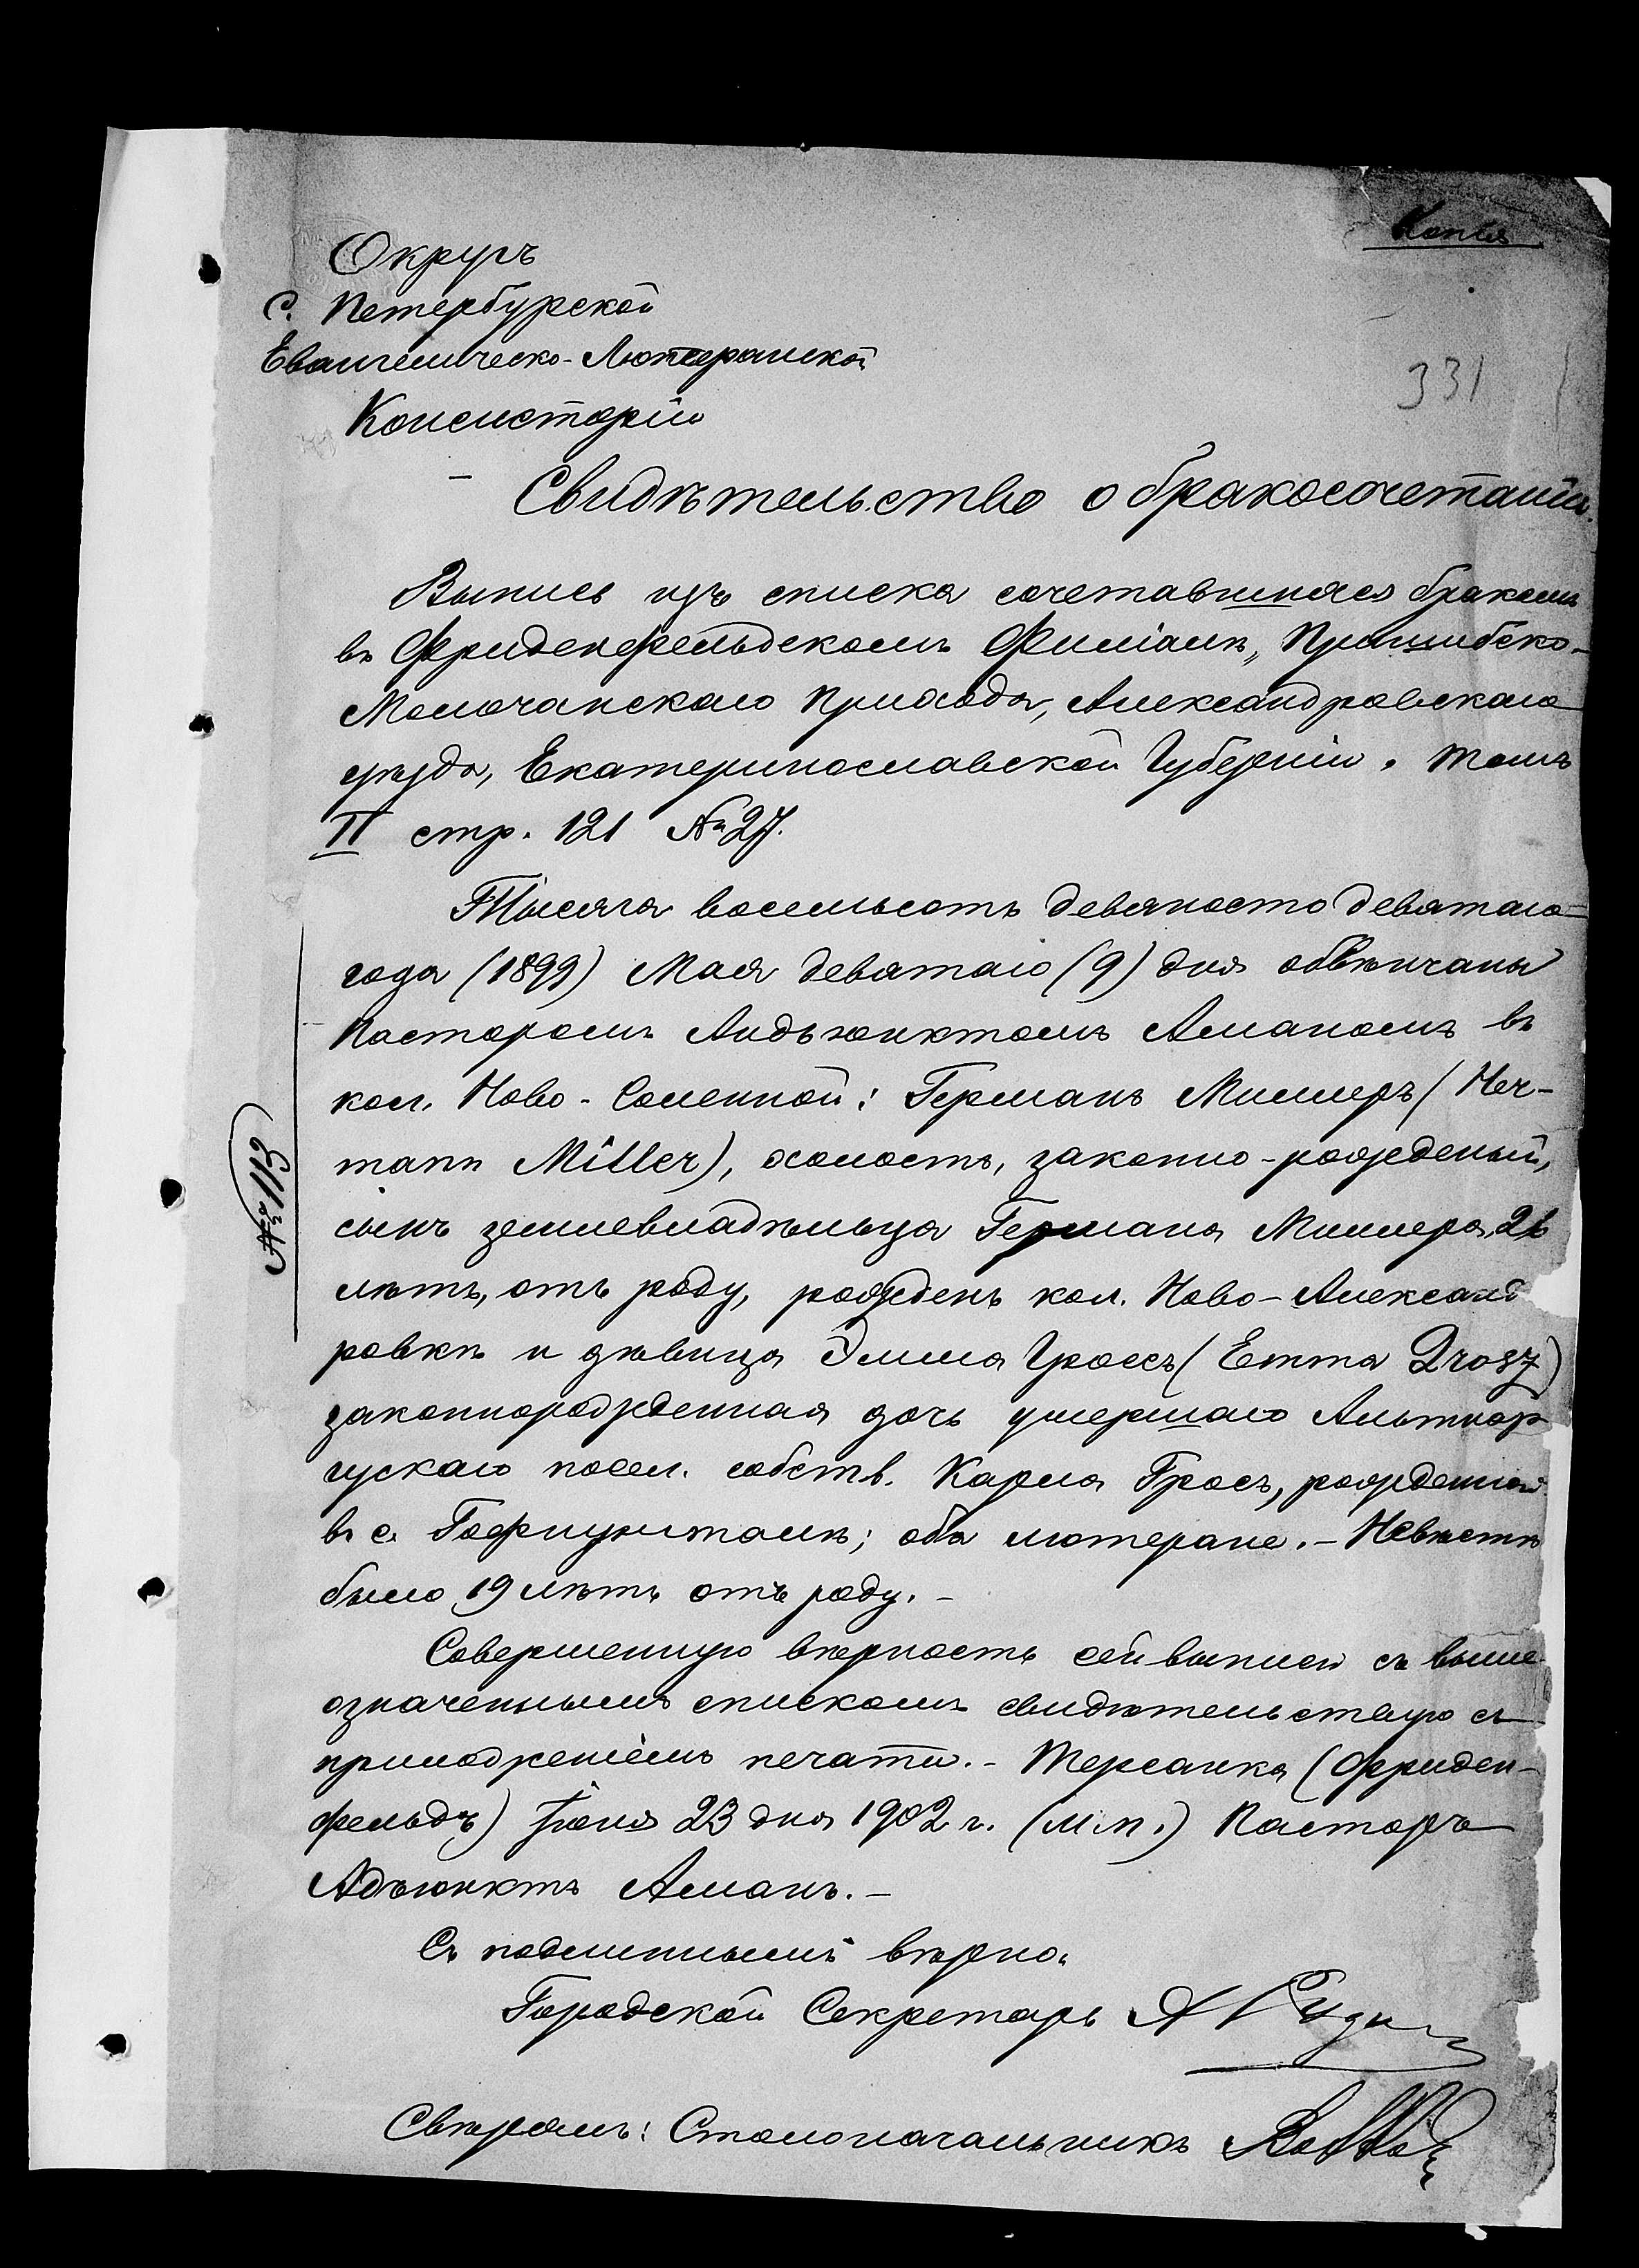 Копія
Округъ
С. Петербурской
Евангелическо-Лютеранской
331
Консисторіи
Свидѣтельство о бракосочетаніи.
Выпись изъ списка сочетавшихся бракомъ
въ Фриденфельдскомъ Филіалѣ, Пришибско-
Молочанскаго прихода, Александровскаго
уѣзда, Екатеринославской Губерніи. Томъ
II стр. 121 № 27.
Тысяча восемьсотъ девяносто девятаго
года (1899) Мая девятаго (9) дня обвѣнчаны
Пасторомъ Аидъюнктомъ Аманомъ въ
кол. Ново-Соленной: Германъ Миллеръ (Her-
mann Miller), холостъ, законно-рожденый,
сынъ землевладѣльца Германа Миллера, 26
лѣтъ, отъ роду, рожденъ кол. Ново-Александ
ровкѣ и дѣвица Эмма Гроссъ (Emma Grosz)
законнорожденная дочь умершаго Альтнор
гускаго посел. собств. Карла Гросъ, рожденная
въ с. Гофнунгталѣ; оба лютеране. - Невѣстѣ
было 19 лѣтъ отъ роду. -
Совершенную вѣрность сей выписи съ выше
означеннымъ спискомъ свидѣтельствую съ
приложеніемъ печати. - Терсанка (Фриден-
фельдъ) Іюня 23 дня 1902 г. (М.П.) Пасторъ
Адъюнктъ Аманъ. -
Съ подлиннымъ вѣрно:
Городской Секретарь
Свѣрялъ: Столоначальникъ
№ 113